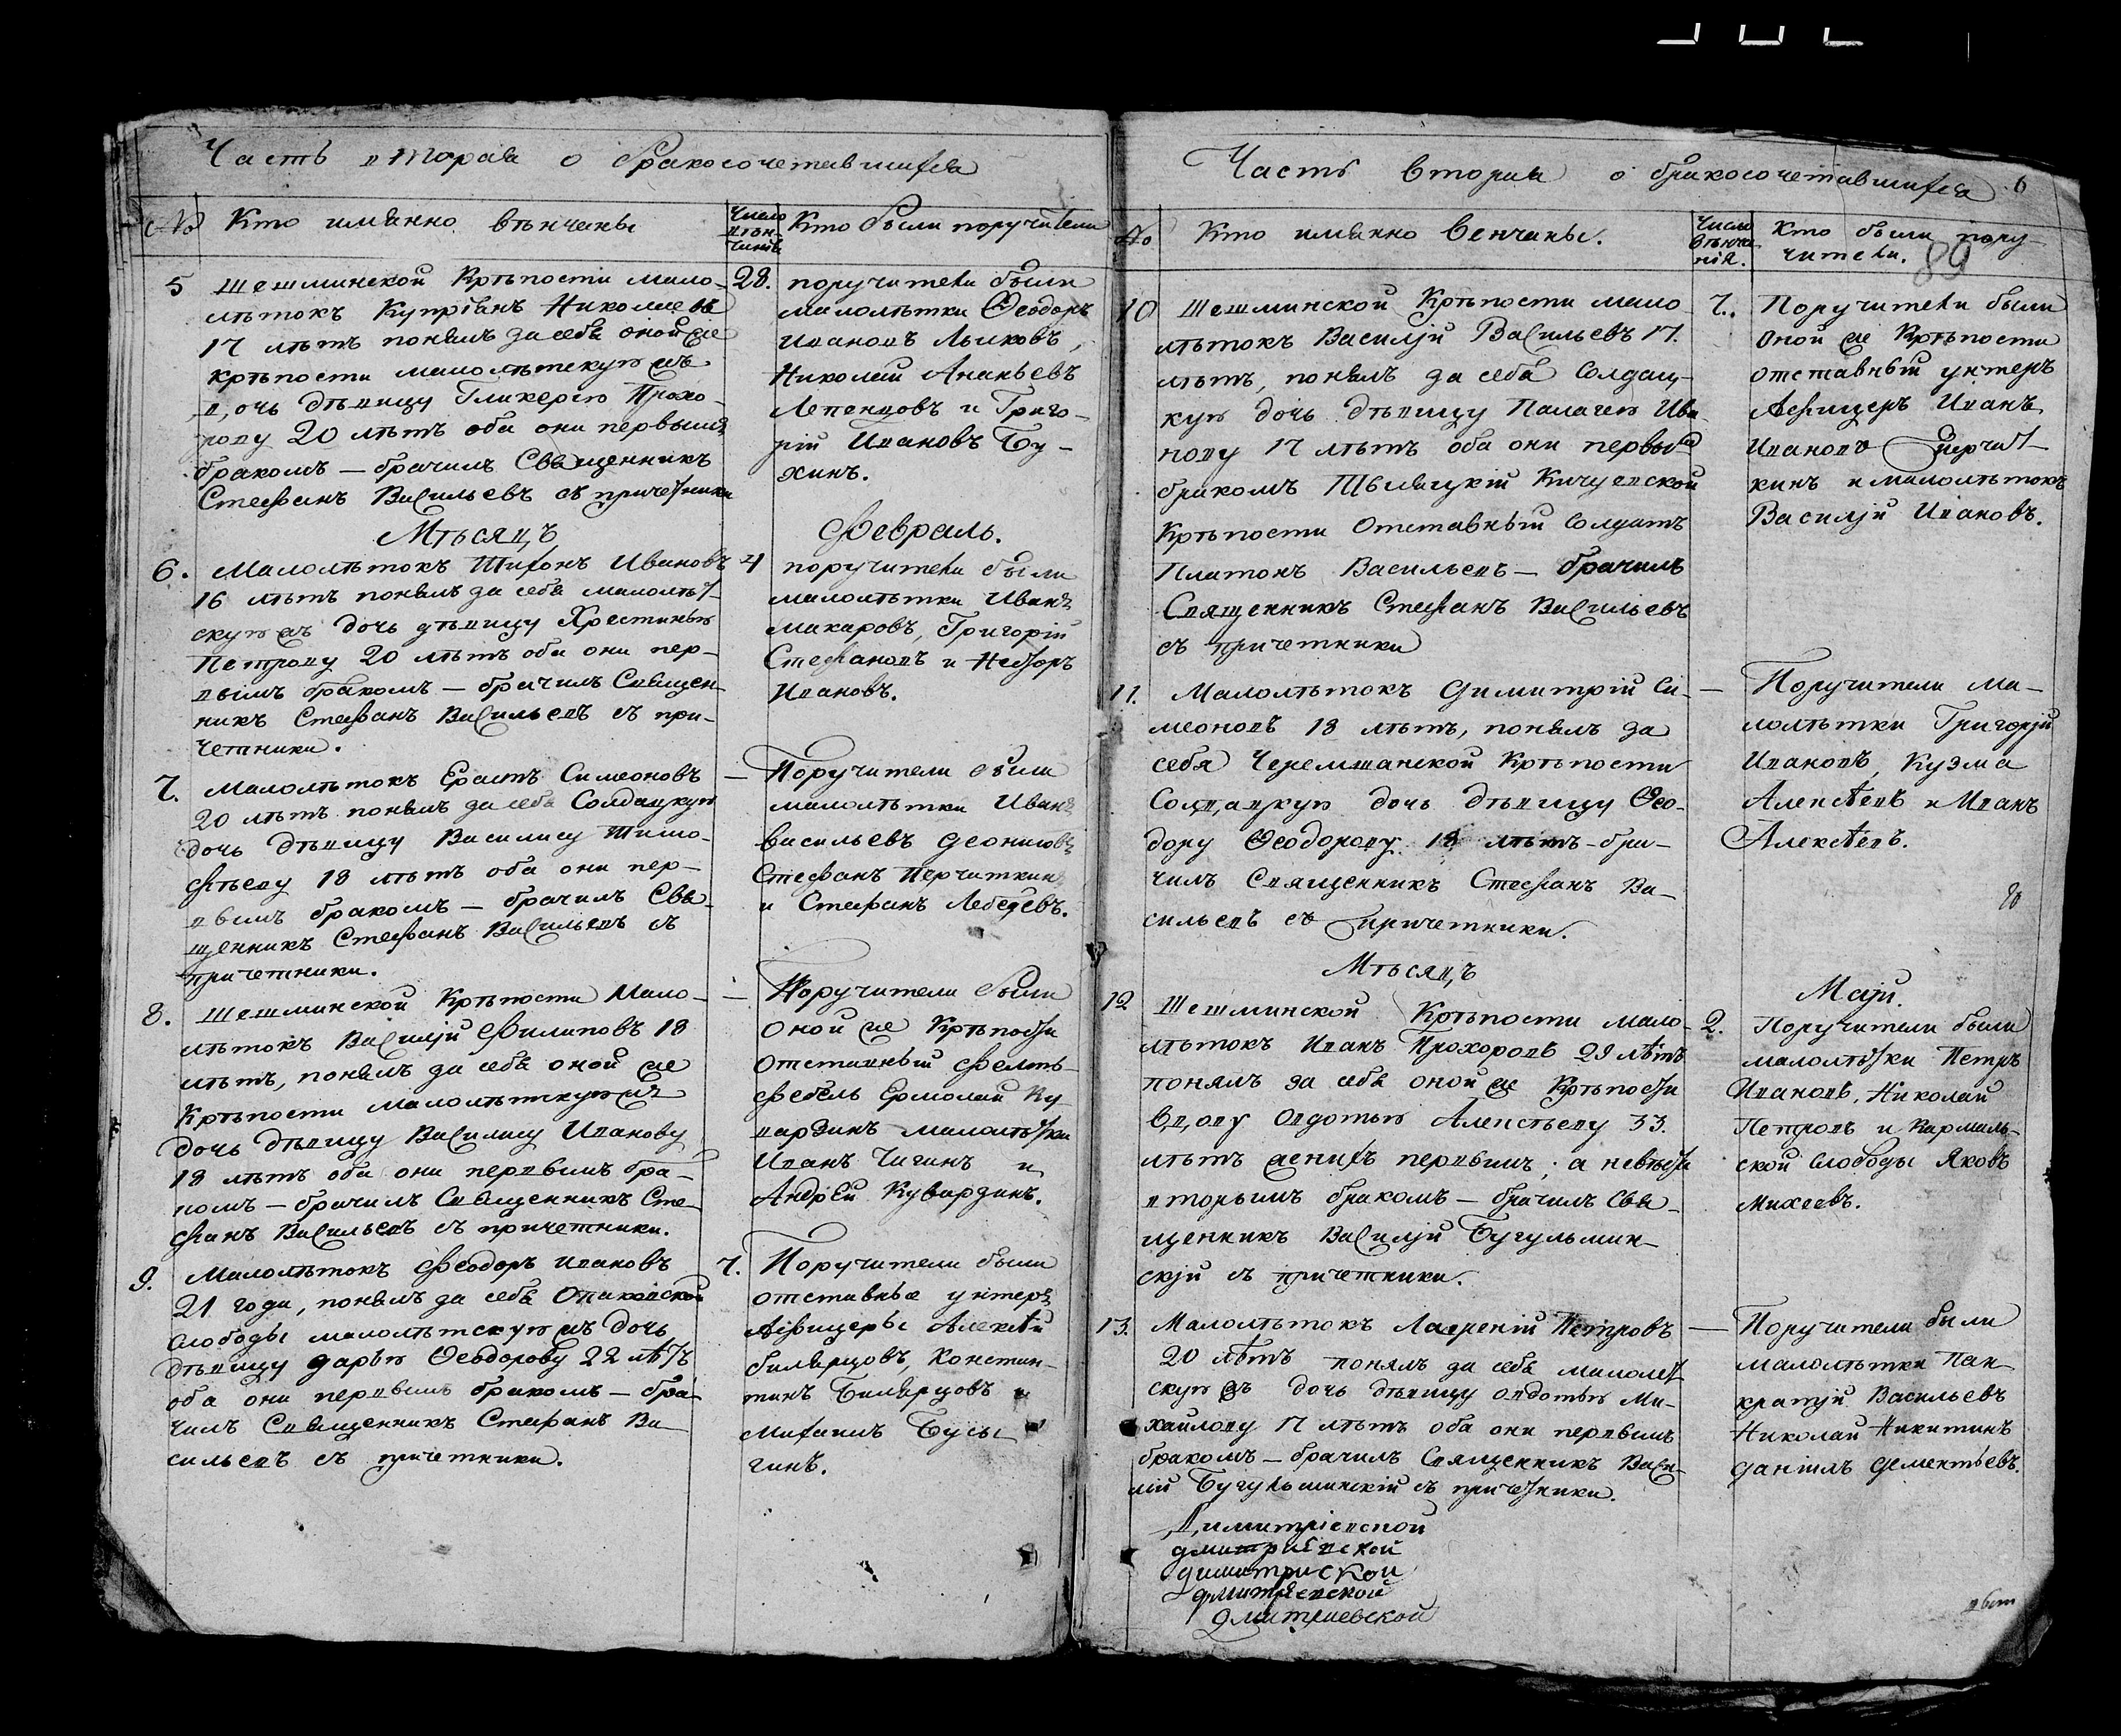 Часть вторая о бракосочетавшихся
№ Кто имянно вѣнчаны
Число вѣн-
чанія
Кто были поручители
5 Шешминской Крѣпости мало-
лѣтокъ Купріанъ Николаевъ
17 лѣтъ понялъ за себя оной же
крѣпости малолѣтскую жъ
дочь дѣвицу Гликерію Прохо-
рову 20 лѣтъ оба они первымъ
бракомъ — брачилъ Священникъ
Стефанъ Васильевъ съ причетники
28. поручители были
малолѣтки Ѳеодоръ
Ивановъ Лыковъ,
Николай Ананьевъ
Лепенцовъ и Григо-
рій Ивановъ Бу-
хинъ.
Мѣсяцъ Февраль.
6. Малолѣтокъ Тихонъ Ивановъ
16 лѣтъ понялъ за себя малолѣт-
скую жъ дочь дѣвицу Христинью
Петрову 20 лѣтъ оба они пер-
вымъ бракомъ — брачилъ Священ-
никъ Стефанъ Васильевъ съ при-
четники.
4 поручители были
малолѣтки Иванъ
макаровъ, Григорій
Стефановъ и Нефѣдъ
Ивановъ.
7. Малолѣтокъ Ерастъ Симеоновъ
20 лѣтъ понялъ за себя Солдацкую
дочь дѣвицу Василису Тимо-
фѣеву 18 лѣтъ оба они пер-
вымъ бракомъ — брачилъ Свя-
щенникъ Стефанъ Васильевъ съ
причетники.
— Поручители были
малолѣтки Иванъ
васильевъ
Стефанъ Перчаткинъ
и Стефанъ Лебедевъ.
8. Шешминской Крѣпости Мало-
лѣтокъ Василій Филиповъ 18
лѣтъ, понялъ за себя оной же
Крѣпости малолѣтскую жъ
дочь дѣвицу Василису Иванову
18 лѣтъ оба они первымъ бра-
комъ — брачилъ Священникъ Сте-
фанъ Васильевъ съ причетники.
— Поручители были
оной же Крѣпости
Отставный фелть-
фебель Ермолай Ку
вардинъ малолѣтки
Иванъ Чигинъ и
Андрей Кувардинъ.
9. Малолѣтокъ Феодоръ Ивановъ
21 года, понялъ за себя
слободы малолѣтскую жъ дочь
дѣвицу Дарью Ѳеодорову 22 лѣтъ
оба они первымъ бракомъ — бра-
чилъ Священникъ Стефанъ Ва-
сильевъ съ причетники.
7. Поручители были
отставные унтеръ
Афицеры Алексѣй
билярцовъ, Констан-
тинъ Билярцовъ и
Михаилъ Бусы
гинъ.
Часть вторая о бракосочетавшихся 6
№ Кто имянно Венчаны.
Число
вѣнча
нія.
Кто были пору-
чители.
89
10 Шешминской Крѣпости мало
лѣтокъ Василій Васильевъ 17.
лѣтъ, понялъ за себя Солдац-
кую дочь дѣвицу Палагею Ива
нову 17 лѣтъ оба они первымъ
бракомъ Кичуевской
Крѣпости Отставный Солдатъ
Платонъ Васильевъ — брачилъ
Священникъ Стефанъ Васильевъ
съ причетники
7. Поручители были
Оной же Крѣпости
отставный унтеръ
Афицеръ Иванъ
Ивановъ Перчат-
кинъ и малолѣтокъ
Василій Ивановъ.
11. Малолѣтокъ Димитрій Си-
меоновъ 18 лѣтъ, понялъ за
себя Черемшанской Крѣпости
Солдацкую дочь дѣвицу Ѳео-
дору Ѳеодорову 18 лѣтъ - бра-
чилъ Священникъ Стефанъ Ва-
сильевъ съ причетники.
— Поручители ма-
лолѣтки Григорій
Ивановъ, Кузма
Алексѣевъ и Иванъ
Алексѣевъ.
Мѣсяцъ Маій.
12 Шешминской Крѣпости мало-
лѣтокъ Иванъ Прохоровъ 29 лѣтъ
понялъ за себя оной же Крѣпости
вдову Овдотью Алексѣеву 33.
лѣтъ женихъ первымъ; а невѣста
вторымъ бракомъ — брачилъ Свя-
щенникъ Василій Бугульмин-
скій съ причетники.
2. Поручители были
малолѣтки Петръ
Ивановъ, Николай
Петровъ и Кармаль-
ской Слободы Яковъ
Михеевъ.
13. Малолѣтокъ Лаврентій Петровъ
20 лѣтъ понялъ за себя малолет
скую жъ дочь дѣвицу овдотью Ми-
хайлову 17 лѣтъ оба они первымъ
бракомъ — брачилъ Священникъ Васи-
лій Бугульминскій съ причетники.
— Поручители были
малолѣтки Пан-
кратій Васильевъ
Николай Никитинъ
Даніилъ Дементьевъ.
Димитріевской
дмитриевской
димитриской
дмитріевской
Дмитриевской